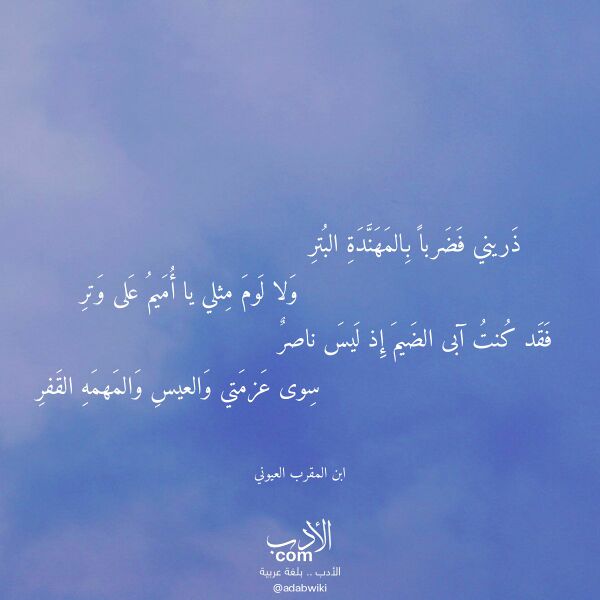 ذَريني فَضَرباً بِالمَهَنَّدَةِ البُترِ
وَلا لَومَ مِثلي يا أُمَيمُ عَلى وَترِ
فَقَد كُنتُ آبى الضَيمَ إِذ لَيسَ ناصرٌ
سِوى عَزمَتي وَالعيسِ وَالمَهمَهِ القَفرِ
ابن المقرب العيوني
الأدب
com
الأدب .. بلغة عربية
@adabwiki